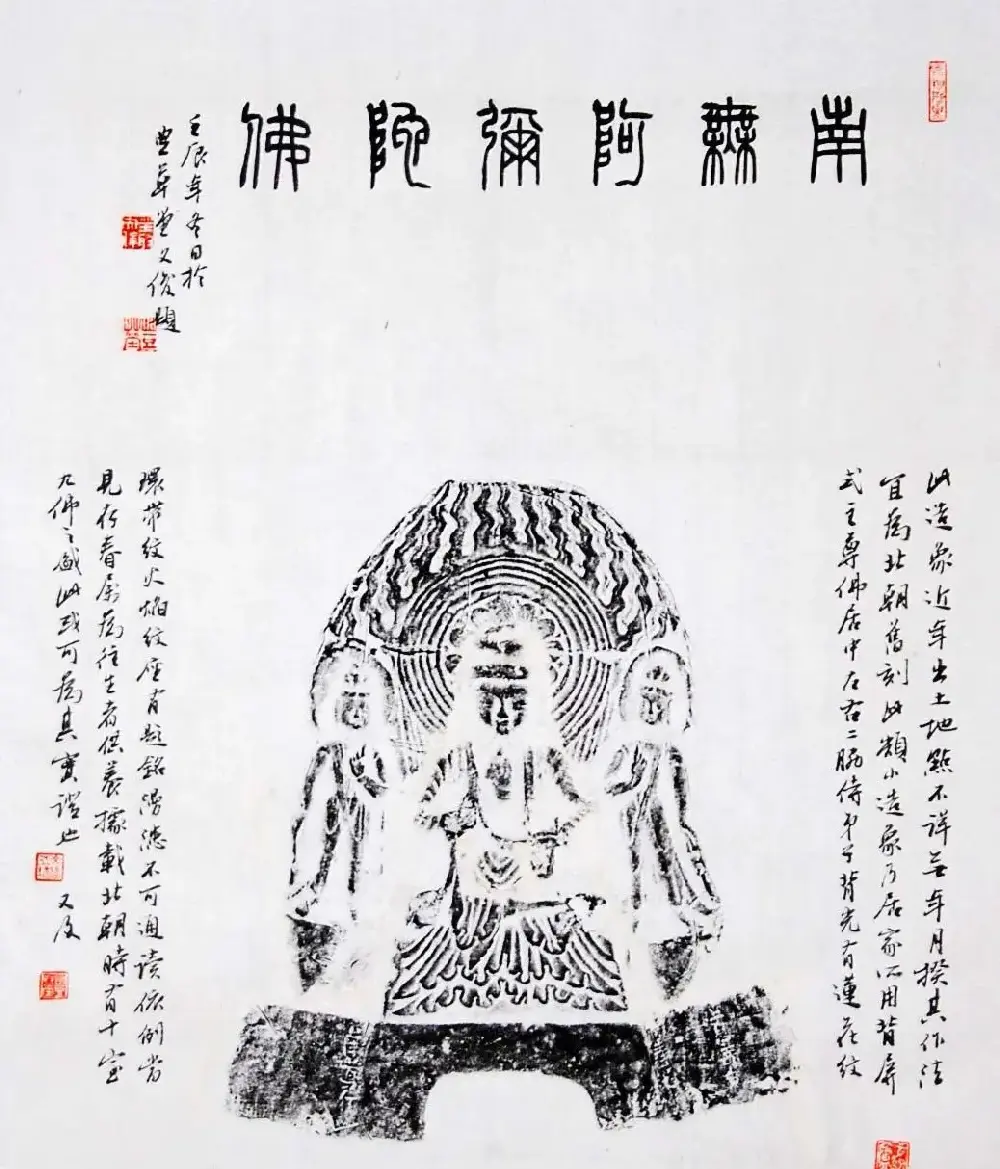 南無阿彌陀佛
壬辰年冬日於
堂文俊題
此造象近年出土地點不詳無年月揆其作法
宜為北朝舊刻此類小造象乃居家所用背屏
式主尊佛居中左右二脇侍弟子背光有蓮花紋
環帶紋火焰紋座有題銘漫漶不可通讀依例當
見存眷屬為往生者供養據載北朝時有十室
九佛之盛此或可為其實證也 又及